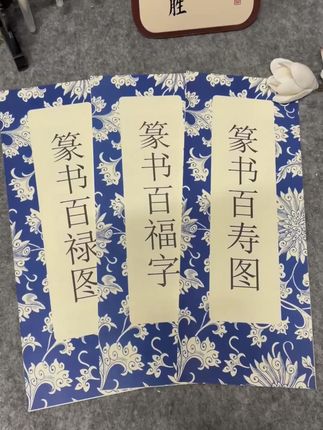 胜
篆书百禄图
篆书百福字
篆书百寿图